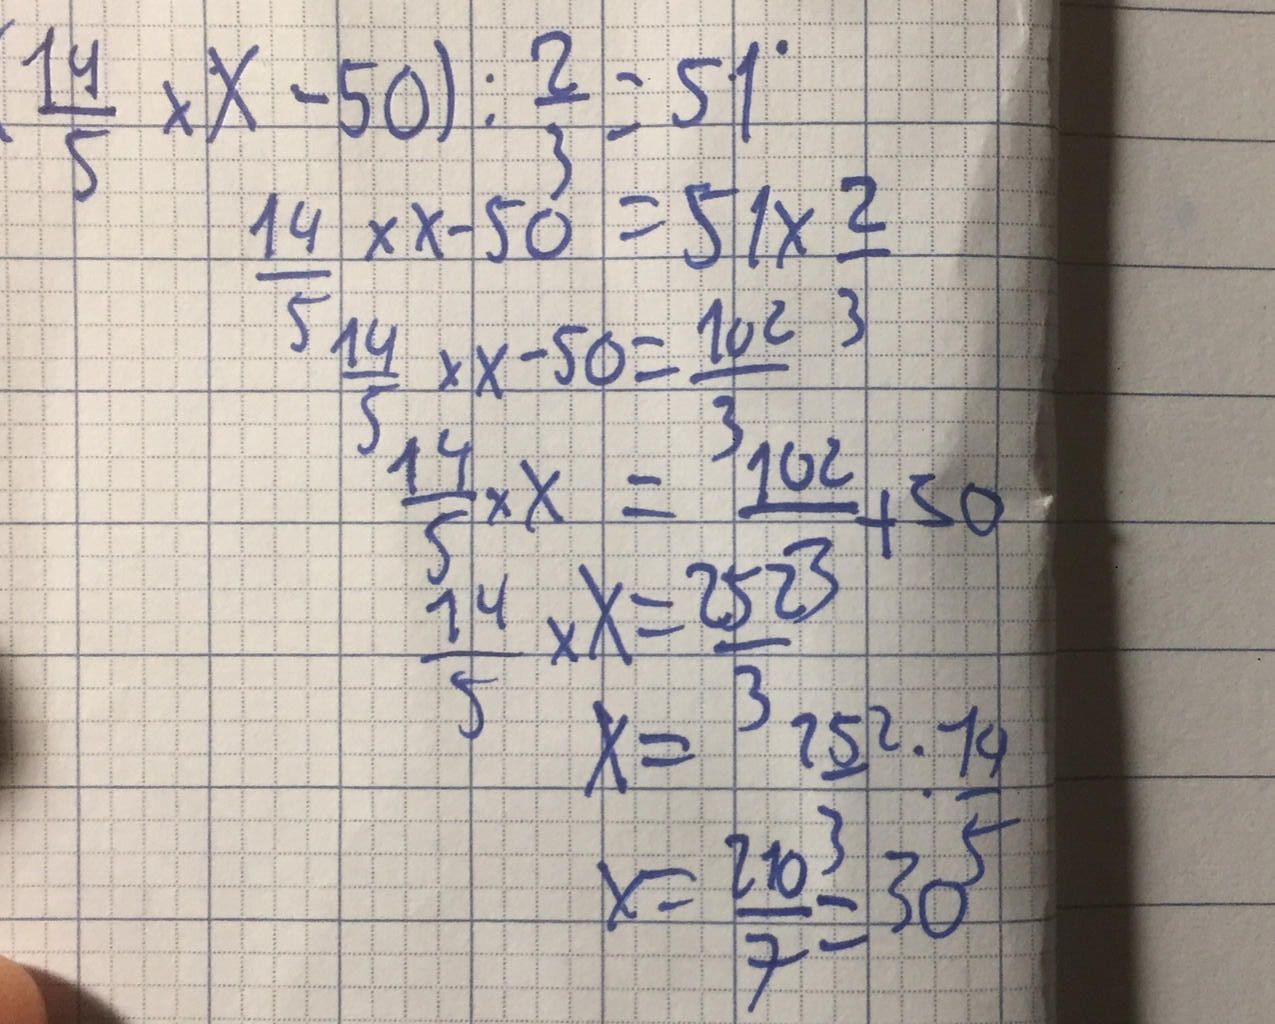 (14/5 x X - 50) : 2/3 = 51
14/5 x x - 50 = 51 x 2/3
14/5 x x - 50 = 102/3
14/5 x X = 102/3 + 50
14/5 x X = 252/3
X = 252/3 : 14/5
x = 210/7 = 30